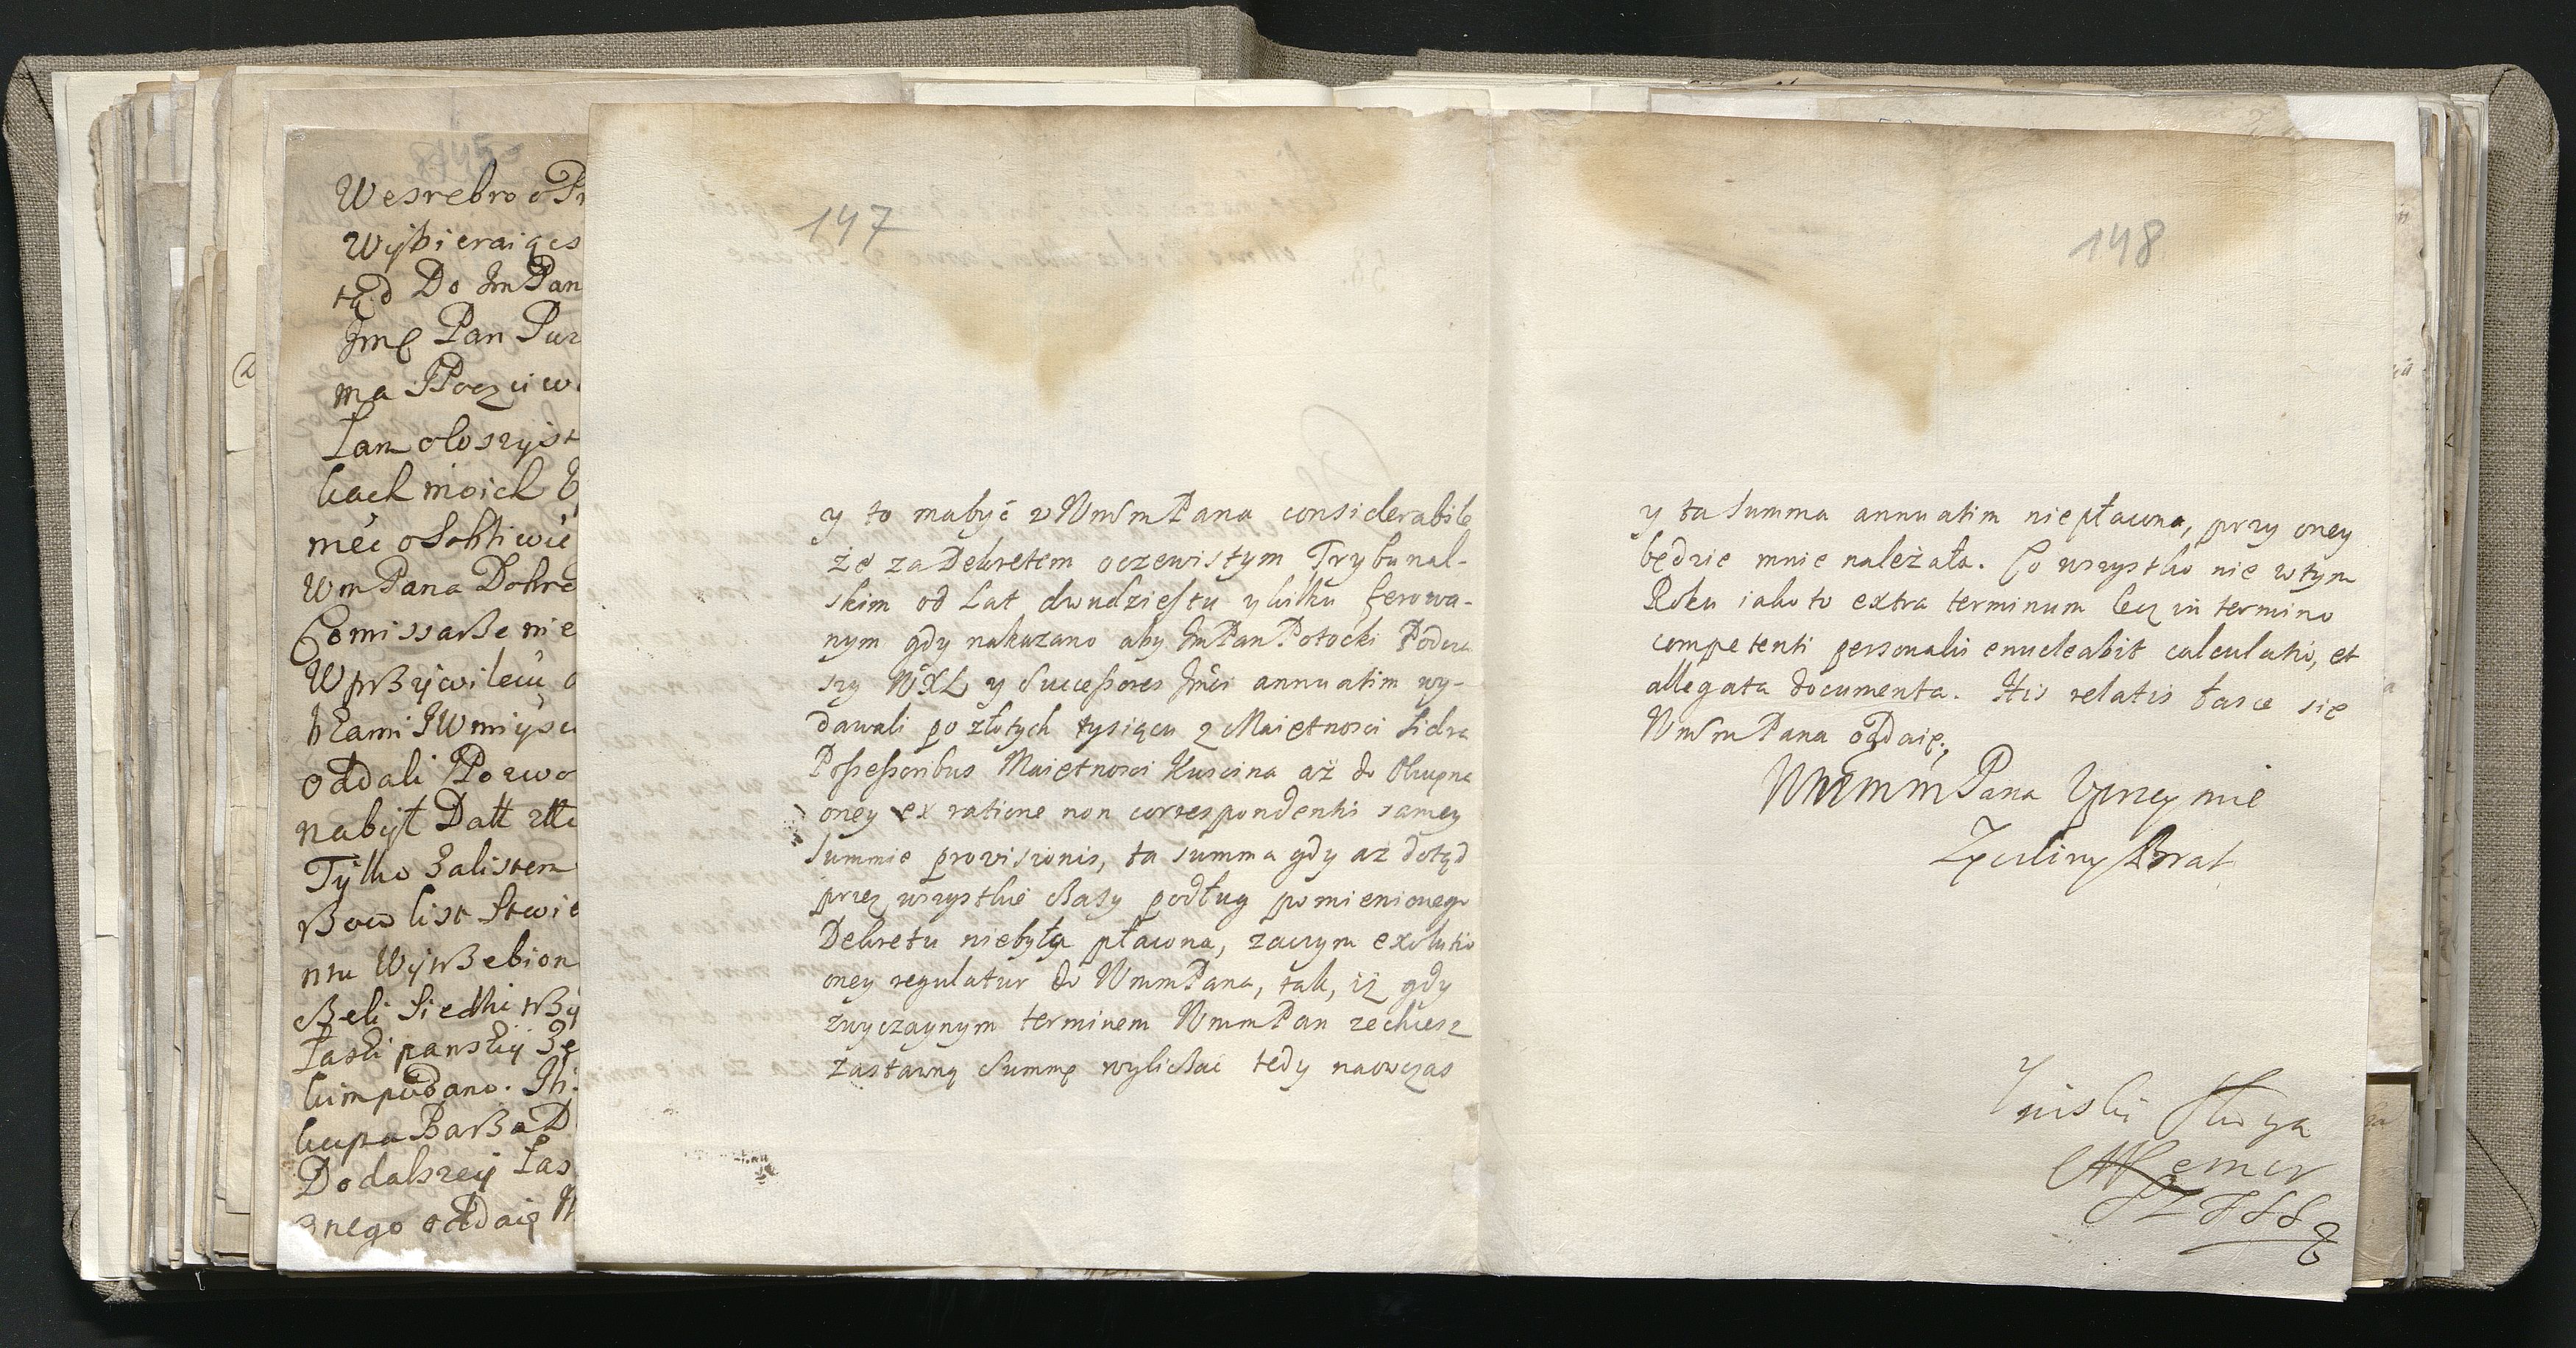 We srebro o Pr
Wÿbieraiąc s
tąd Do Jm Pan
Jmę Pan Pusz
ma Poczciw
Łam oloszÿst
kach moich
méi osobliwie
Wm Pana Dobro
Comissaße nie
W prßÿwileiu
kłami IWmÿsu
oddali Pozwo
nabÿł Datt
Tÿlko Zalistem
ßow list Stwie
ntu Wÿtßebion
cßeli Siedhi
Łaski panskiÿ Ze
kim podano.
kupna Barßa D
Do dalszeÿ Łas
znego oddaię
147
y to mabyć v WmSmPana considerabile
że za Dekretem oczewistym Trybunal-
skim od Lat dwudziestu y kilku ferowa-
nym gdy nakazano aby JmPan Potocki Podcza
szy WXL y Successores Jmci annuatim wy-
dawali po złotych tysiącu z Maiętnosci Sidra
Possessoribus Maiętnosci Kuscina aż do Okupna
oney ex ratione non correspondentis samey
summie provisionis, ta summa gdy aż dotąd
przez wszystkie czasy podług pomienionego
Dekretu niebyła płacona, zaczym exolutio
oney regulatur do WmmPana, tak, iż gdy
zwyczaynym terminem WmmPan zechcesz
zastawną Summę wyliczać tedy naowczas
148
y ta summa annuatim niepłacona, przy oney
będzie mnie należała. Co wszystko nie w tym
Roku iako to extra terminum lecz in termino
competenti personalis enucleabit calculatio, et
allegata documenta. His relatis łasce się
WmSmPana oddaię,
WmMmPana Uprzeymie
Zyczliwy Brat
y niski Sługa